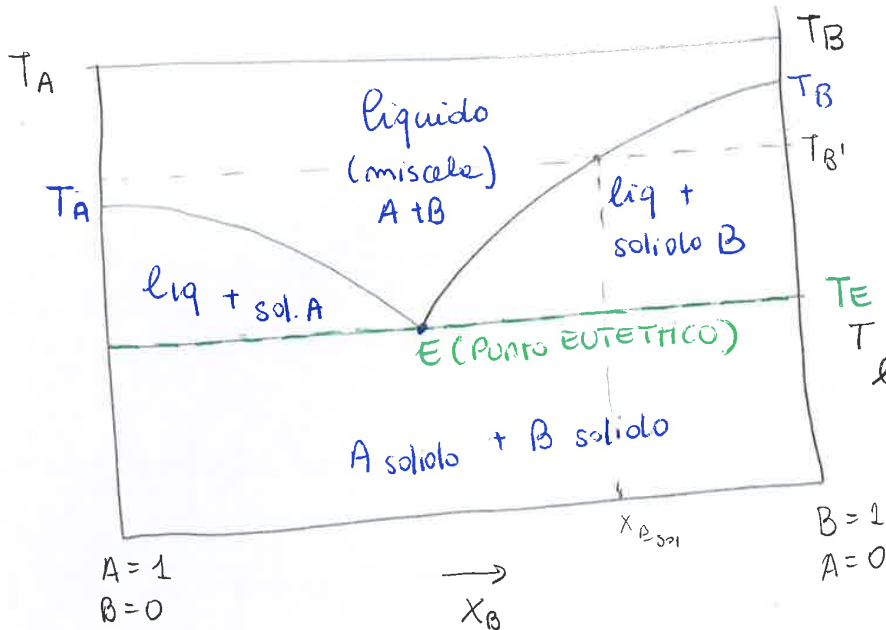 T_A
T_B
liquido
(miscela)
A + B
T_B
T_B'
T_A
liq +
solido B
liq + sol. A
T_E
E (PUNTO EUTETTICO)
T
A solido + B solido
X_B sol
A = 1
B = 0
→
X_B
B = 1
A = 0